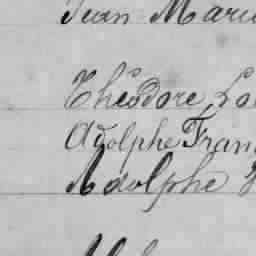 Jean Marie
Théodore Lo
Adolphe Fran
Adolphe